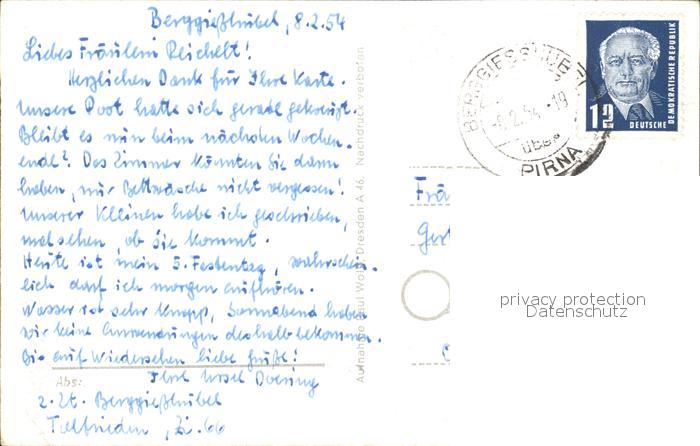 Berggießhübel, 8.2.54
Liebes Fräulein Reichelt!
Herzlichen Dank für Ihre Karte.
Unsere Post hatte sich gerade gekreuzt.
Bleibt es nun beim nächsten Wochen-
ende? Das Zimmer könnten Sie dann
haben, nur Bettwäsche nicht vergessen!
Unserer Kleinen habe ich geschrieben,
mal sehen, ob sie kommt.
Heute ist mein 5. Fastentag, wahrschein-
lich darf ich morgen aufhören.
Wasser ist sehr knapp, Sonnabend haben
wir keine Anwendungen deshalb bekommen.
Bis auf Wiedersehen liebe Grüße!
Ihre Ursel Doering
Abs:
z. Zt. Berggießhübel
Talfrieden, Zi. 66
Aufnahme Paul Wolf, Dresden A 46. Nachdruck verboten
BERGGIESSHÜBEL
-8.2.54.-19
PIRNA
12
DEUTSCHE
DEMOKRATISCHE REPUBLIK
Frä
Gert
privacy protection
Datenschutz